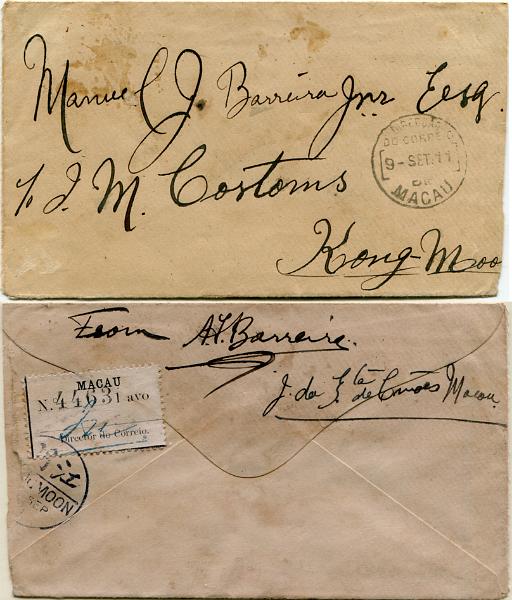 Manuel J. Barreira Jnr Esq.
DO CORREIO
9-SET.11
DE
MACAU
c/o I. M. Customs
Kong-Moo
From A. F. Barreira.
MACAU
N. 44631 avo
Director do Correio.
J. da Sta de Macau.
MOON
SEP
江